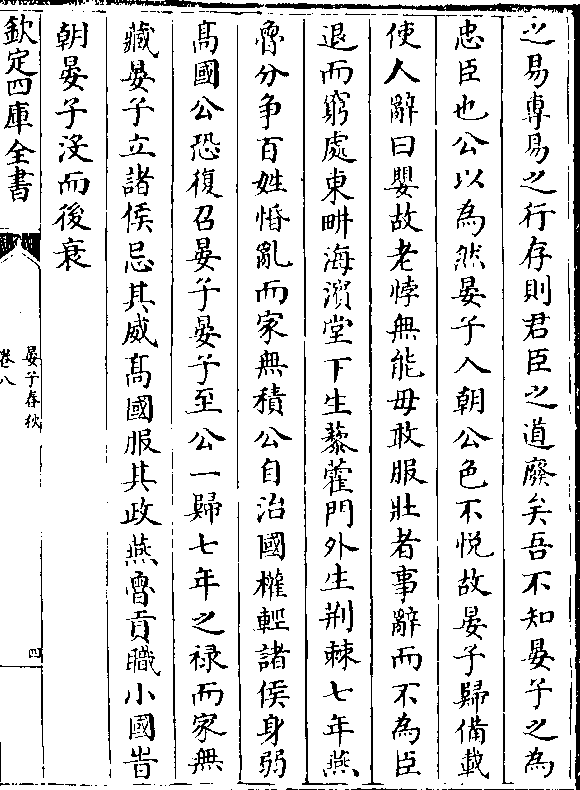 之易專易之行存則君臣之道廢矣吾不知晏子之為
忠臣也公以為然晏子入朝公色不悅故晏子歸備載
使人辭曰嬰故老悖無能毋敢服壯者事辭而不為臣
退而窮處東畊海濵堂下生藜藿門外生荆棘七年燕
魯分争百姓惛亂而家無積公自治國權輕諸侯身弱
髙國公恐復召晏子晏子至公一歸七年之禄而家無
藏晏子立諸侯忌其威髙國服其政燕魯貢職小國皆
朝晏子沒而後衰
欽定四庫全書
晏子春秋
卷八
四